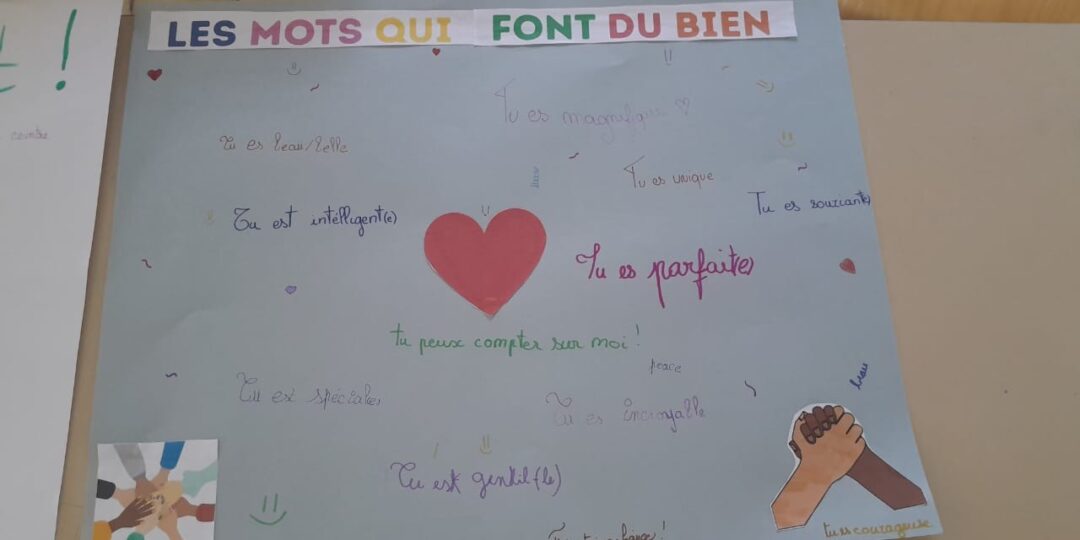 LES MOTS QUI FONT DU BIEN
Tu es magnifique
Tu es beau/belle
Tu es unique
Tu es souriant(e)
Tu est intélligent(e)
Tu es parfait(e)
tu peux compter sur moi !
peace
beau
Tu est spéciale
Tu es incroyable
Tu est gentil(le)
tu es courageuse